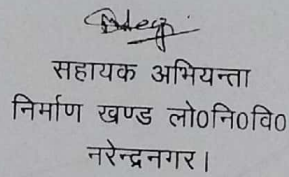 सहायक अभियन्ता
निर्माण खण्ड लो०नि०वि०
नरेन्द्रनगर।